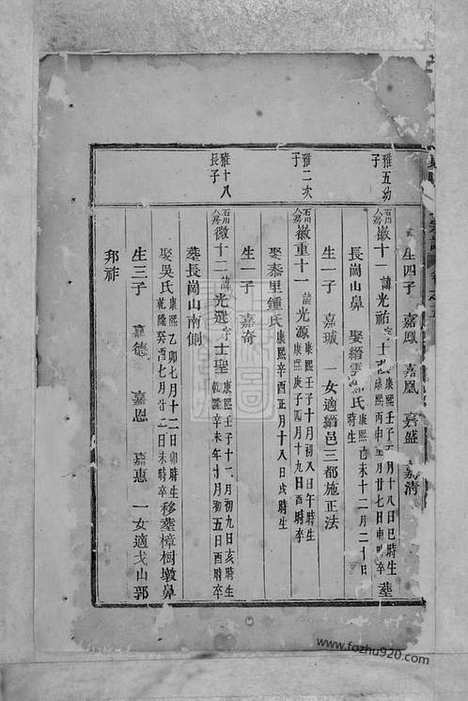 生四子 嘉鳳 嘉凰 嘉盛 嘉淸
雅五幼子
徽十一 諱光祐 字士 康熙壬子五月十八日巳時生 康熙丙申五月廿七日申時卒 葬
長崗山鼻 娶縉雲 氏 康熙己未十二月二十日 時生
生一子 嘉珹 一女適縉邑三都施正法
雅二次子
徽重十一 諱光源 康熙壬子十月初八日午時生 康熙庚子四月十九日亥時卒
娶泰里鍾氏 康熙辛酉正月十八日戌時生
生一子 嘉奇
雅十八長子
徽十二 諱光選 字士聖 康熙壬子十二月初九日亥時生 乾隆辛未年 月初五日酉時卒
葬長崗山南側
娶吳氏 康熙乙卯七月十二日卯時生 乾隆癸酉七月廿二日未時卒 移葬樟樹墩鼻
生三子 嘉德 嘉恩 嘉惠 一女適戈山郭
邦祚
www.fozhu920.com